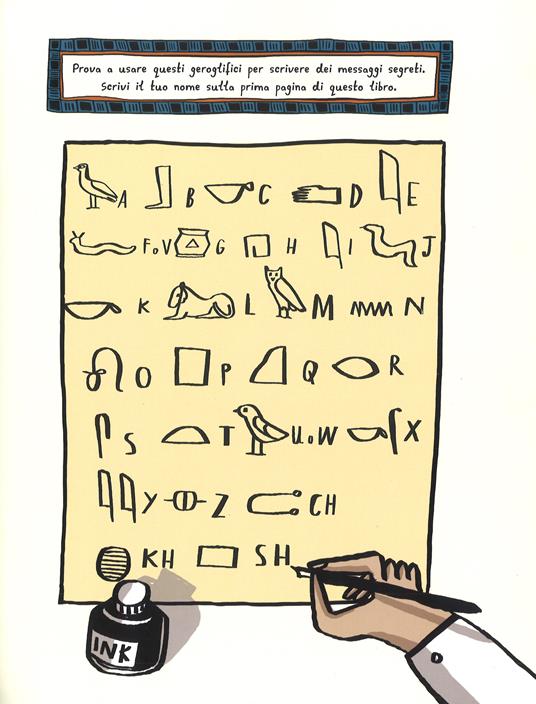 Prova a usare questi geroglifici per scrivere dei messaggi segreti.
Scrivi il tuo nome sulla prima pagina di questo libro.
A B C D E
F o V G H I J
K L M N
O P Q R
S T U o W X
Y Z CH
KH SH
INK